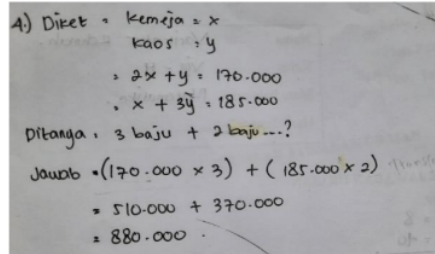 4.) Diket : kemeja = x
kaos : y
: 2x + y = 170.000
. x + 3y = 185.000
Ditanya : 3 baju + 2 baju ...?
Jawab • (170.000 x 3) + ( 185.000 x 2)
= 510.000 + 370.000
= 880.000 .